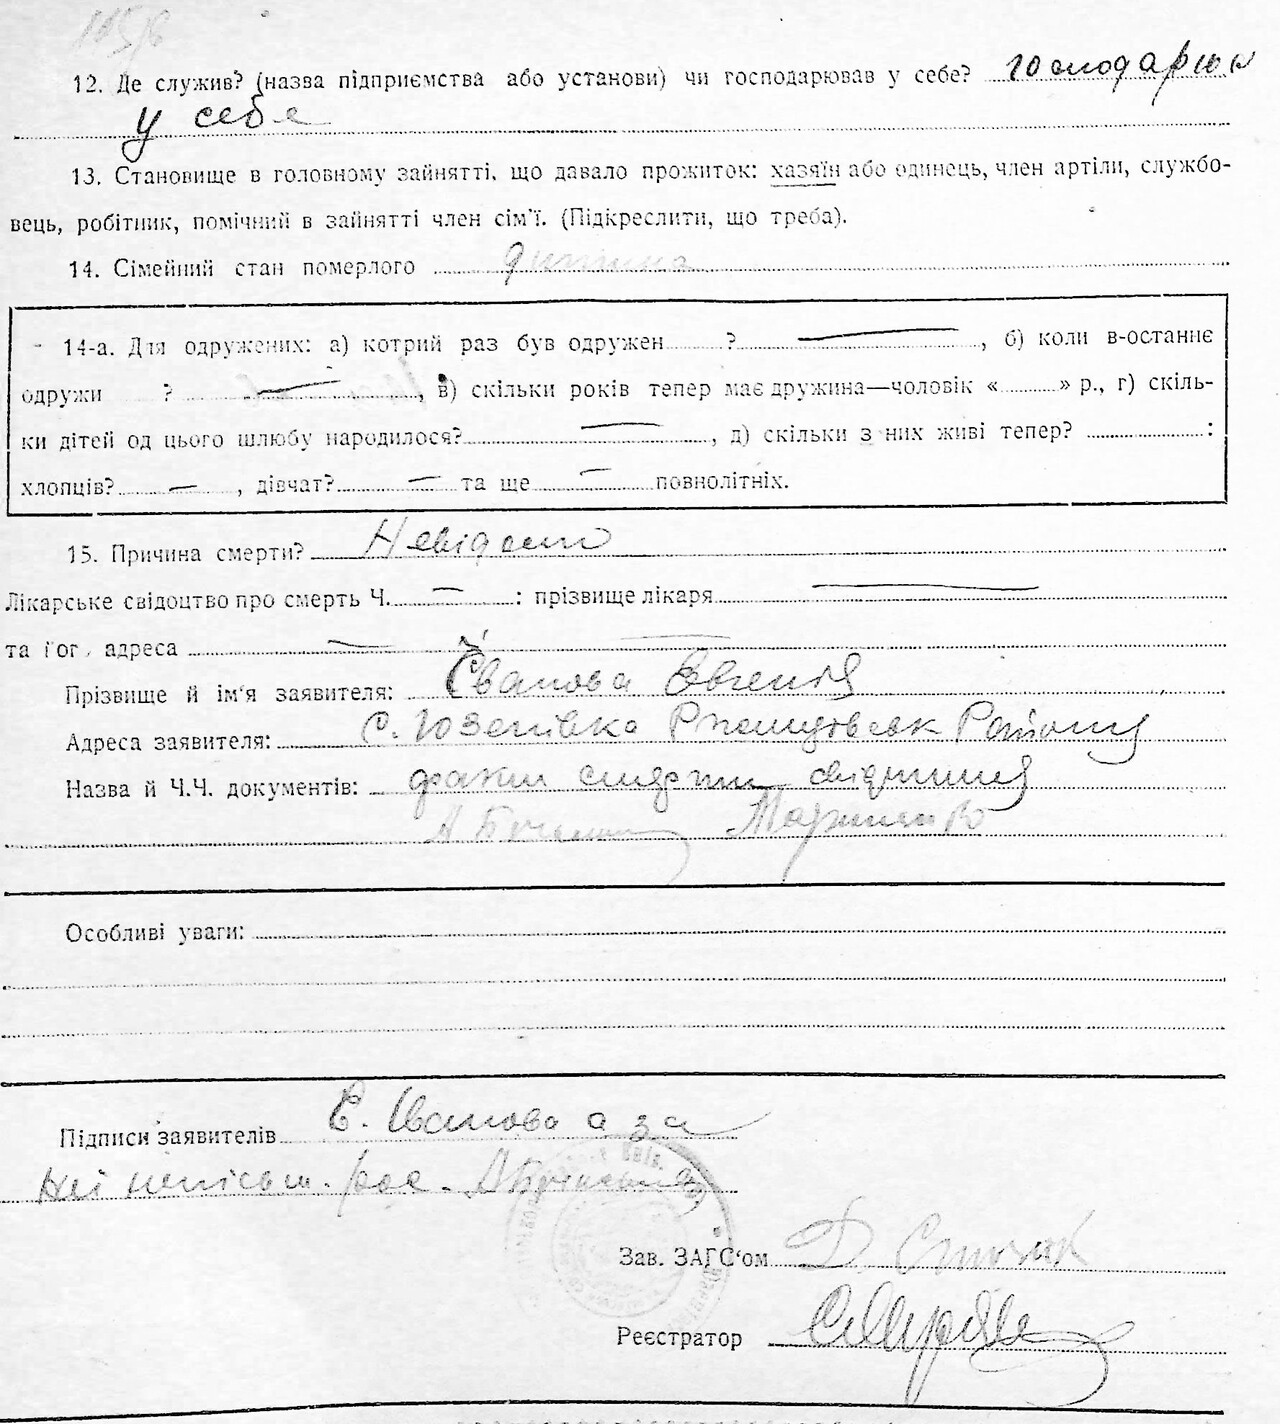 12. Де служив? (назва підприємства або установи) чи господарював у себе? господарюв
у себе
13. Становище в головному зайнятті, що давало прожиток: хазяїн або одинець, член артіли, службо-
вець, робітник, помічний в зайнятті член сім'ї. (Підкреслити, що треба).
14. Сімейний стан померлого дитина
14-а. Для одружених: а) котрий раз був одружен ? —, б) коли в-останнє
одружи ? —, в) скільки років тепер має дружина—чоловік « » р., г) скіль-
ки дітей од цього шлюбу народилося? —, д) скільки з них живі тепер? :
хлопців? —, дівчат? — та ще — повнолітніх.
15. Причина смерти? Невідомо
Лікарське свідоцтво про смерть Ч. — : прізвище лікаря —
та адреса —
Прізвище й ім'я заявителя: Іванова Євгенія
Адреса заявителя: с. Юзепівка Району
Назва й Ч.Ч. документів: факт смерти
Особливі уваги:
Підписи заявителів Є. Іванова а за
неї неписьм. рос.
Зав. ЗАГС'ом
Реєстратор